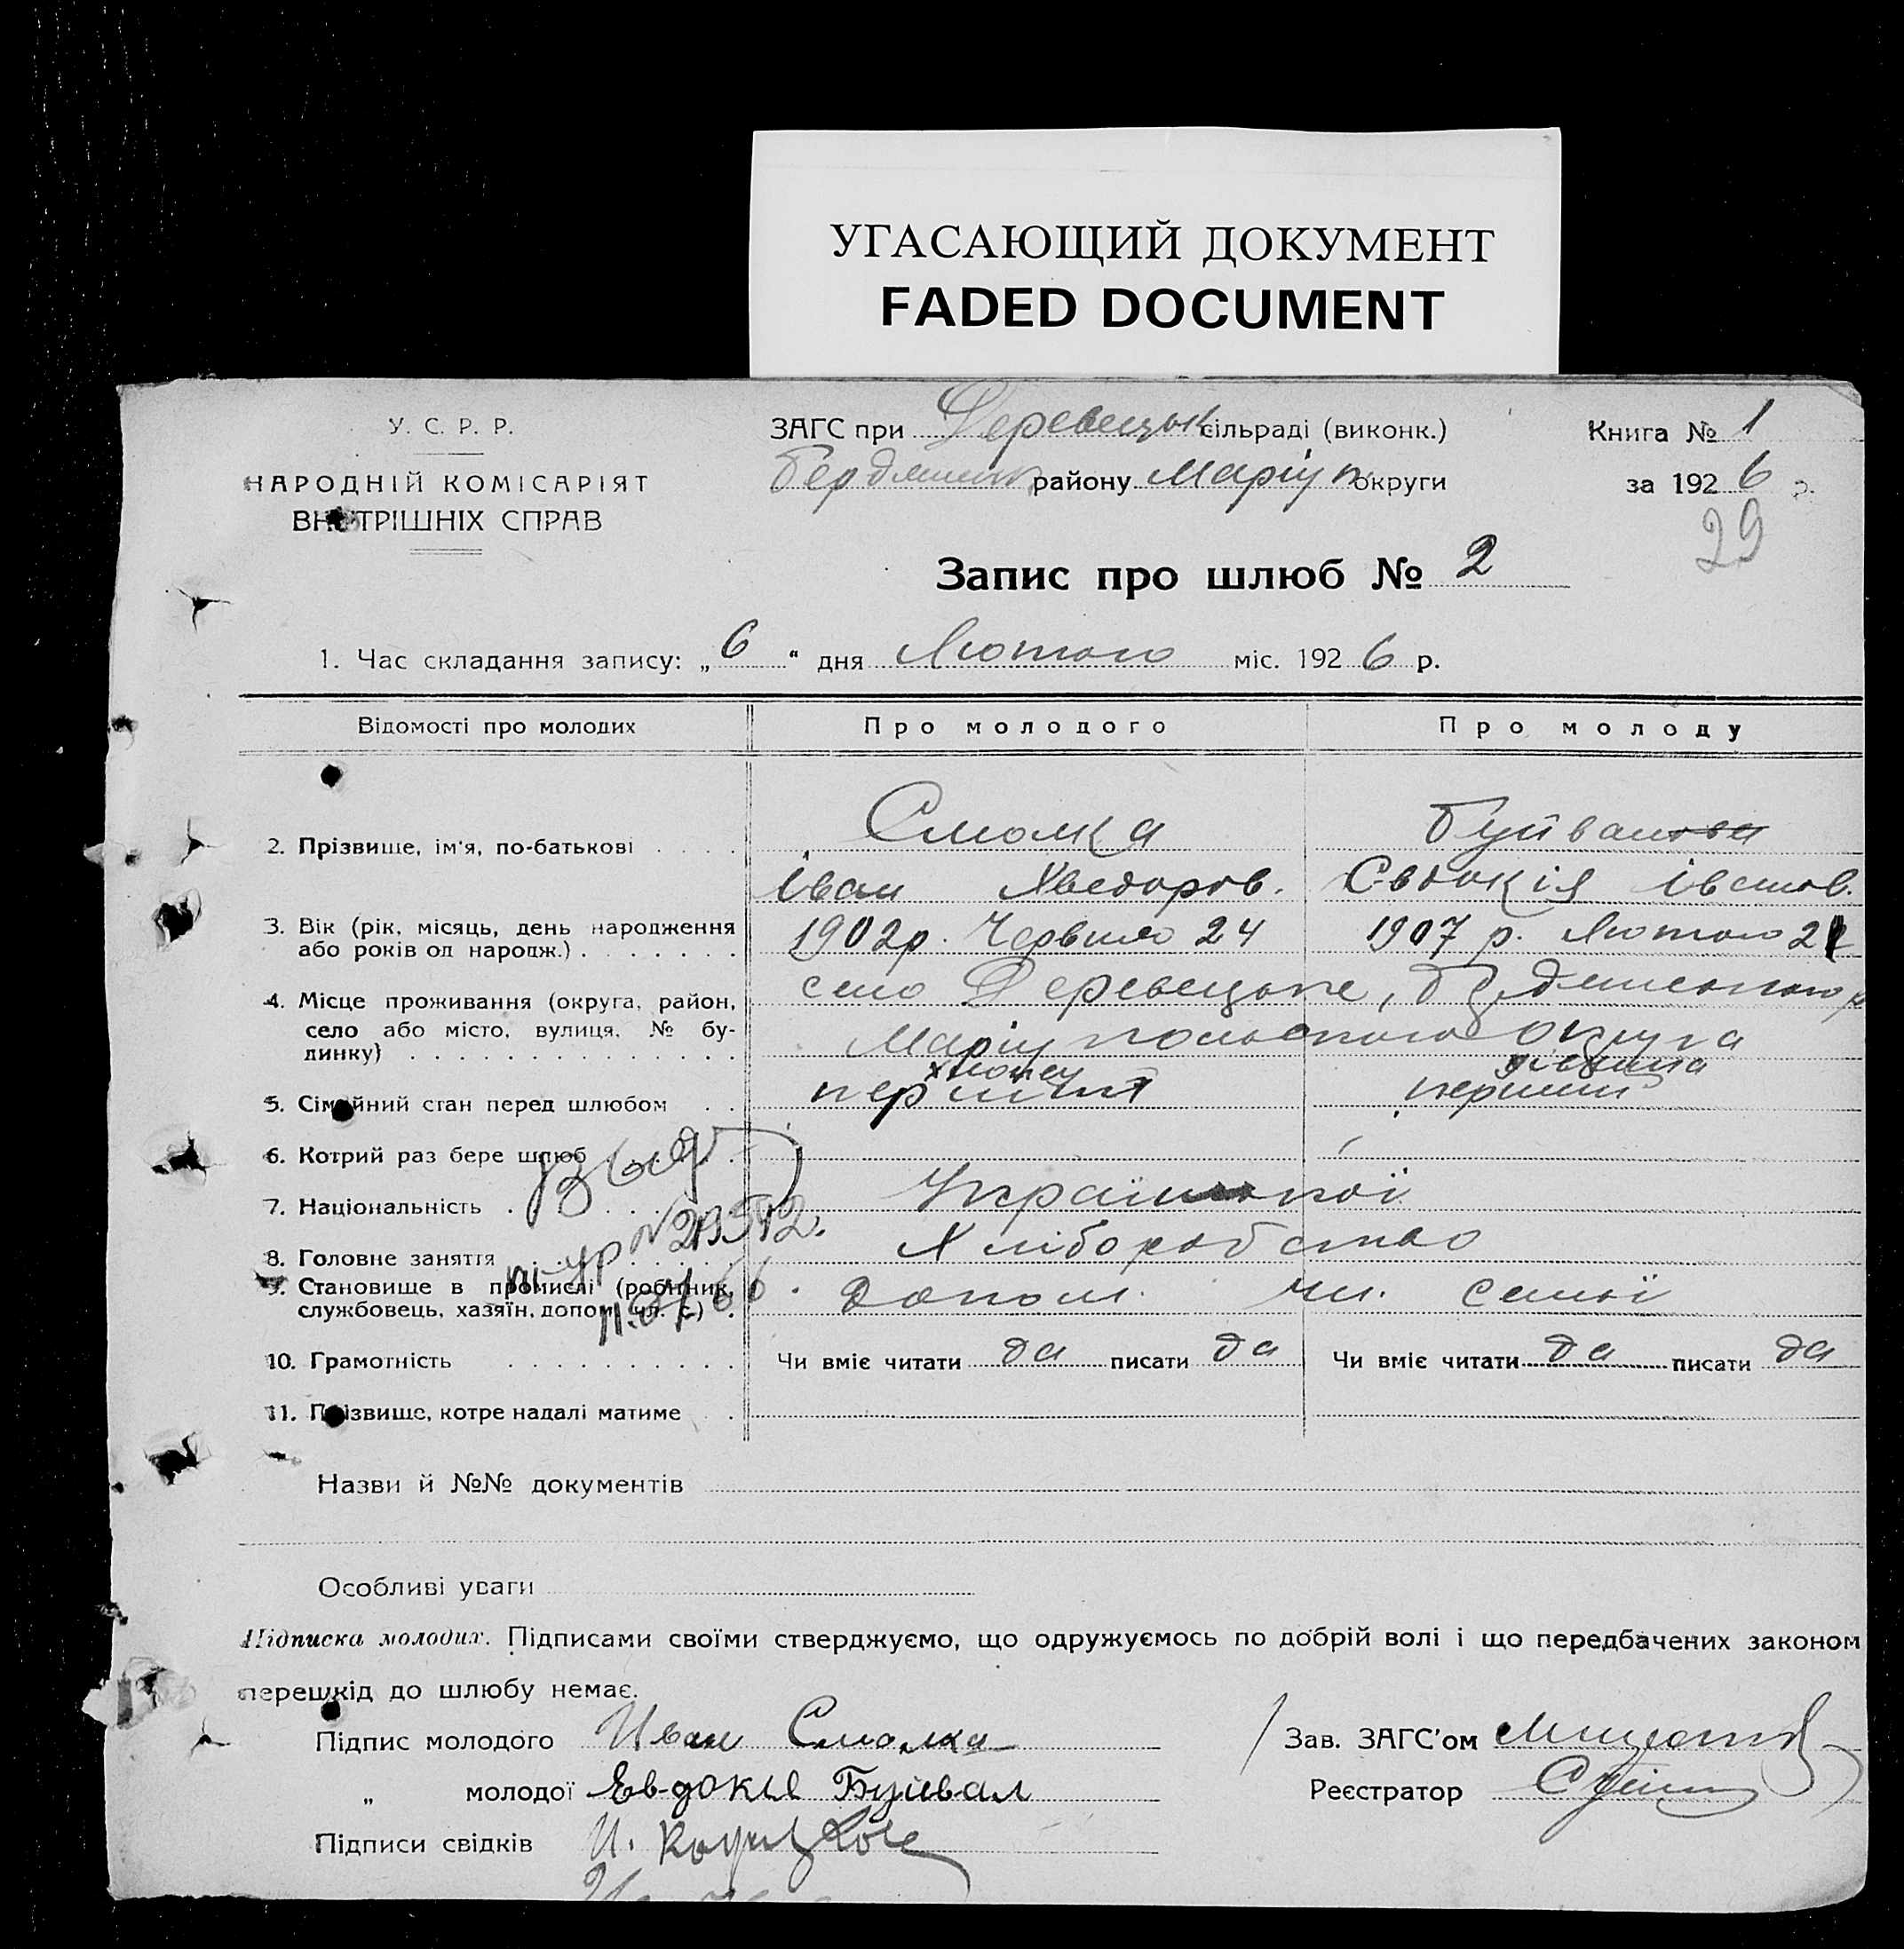 УГАСАЮЩИЙ ДОКУМЕНТ
FADED DOCUMENT
У. С. Р. Р.
НАРОДНІЙ КОМІСАРІЯТ
ВНУТРІШНІХ СПРАВ
ЗАГС при Деревецьк сільраді (виконк.)
Бердянськ. району Маріуп округи
Книга № 1
за 1926 р.
29
Запис про шлюб № 2
1. Час складання запису: „6“ дня Лютого міс. 1926 р.
Відомості про молодих Про молодого Про молоду
2. Прізвище, ім'я, по-батькові Смолка Буйвал
Іван Хведоров. Євдокія Іванов.
3. Вік (рік, місяць, день народження або років од народж.) 1902р. Червня 24 1907 р. Лютого
4. Місце проживання (округа, район, село або місто, вулиця, № будинку) село Деревецьке, Бердянського р
Маріупольского округа
хлопец дівчина
5. Сімейний стан перед шлюбом перший перший
6. Котрий раз бере шлюб
7. Національність Української
8. Головне заняття Хліборобство
9. Становище в промислі (робітник, службовець, хазяїн, допом. чл. с.) допом. чл. семьї
10. Грамотність Чи вміє читати да писати да Чи вміє читати да писати да
11. Прізвище, котре надалі матиме
Назви й №№ документів
Особливі уваги
Підписка молодих. Підписами своїми стверджуємо, що одружуємось по добрій волі і що передбачених законом
перешкід до шлюбу немає.
Підпис молодого Иван Смолка
„ молодої Евдокия Буйвал
Підписи свідків И.
Зав. ЗАГС'ом
Реєстратор